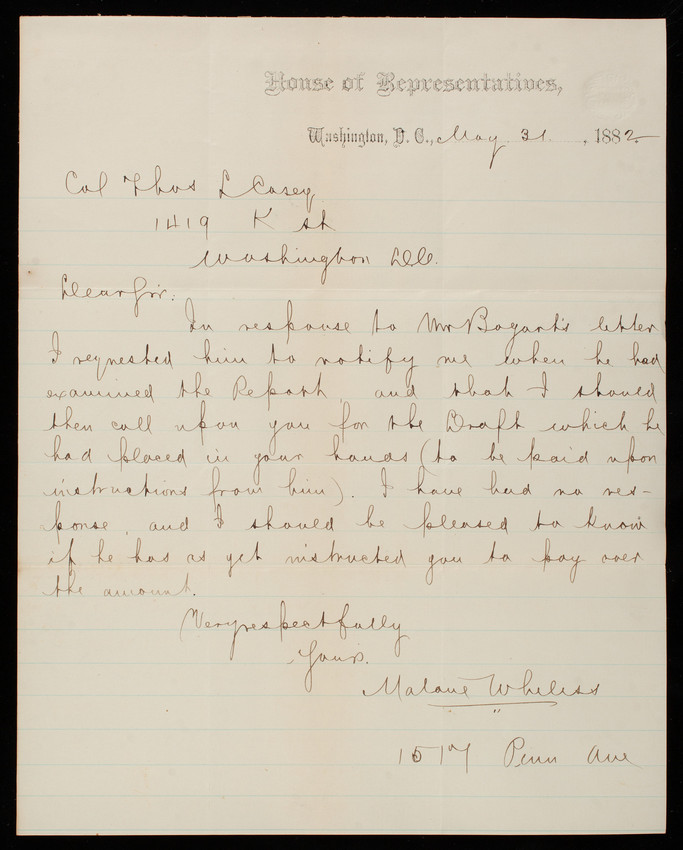 House of Representatives,
Washington, D. C., May 31, 1882
Col Thos L Casey
1419 K st
Washington D.C.
Dear Sir:
In response to Mr Bogart's letter
I requested him to notify me when he had
examined the Report, and that I should
then call upon you for the Draft which he
had placed in your hands (to be paid upon
instructions from him). I have had no res-
ponse, and I should be pleased to know
if he has as yet instructed you to pay over
the amount.
Very respectfully
Yours.
Malone Wheless
1517 Penn Ave